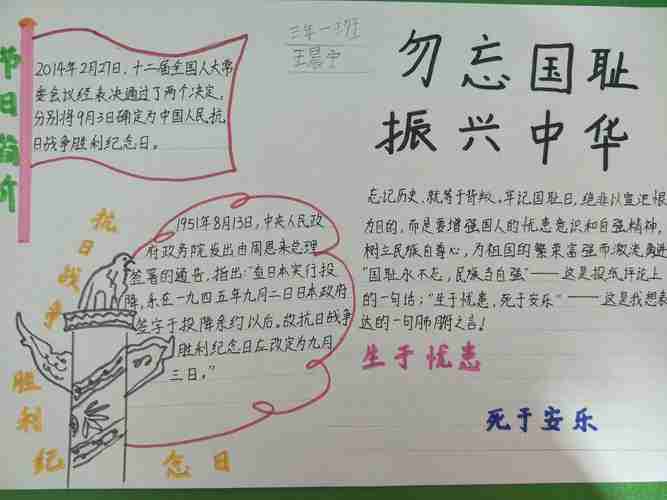 三年一班
王晨宁
勿忘国耻
振兴中华
节日简介
2014年2月27日，十二届全国人大常
委会议经表决通过了两个决定，
分别将9月3日确定为中国人民抗
日战争胜利纪念日。
抗日战争
胜利纪念日
1951年8月13日，中央人民政
府政务院发出由周恩来总理
签署的通告，指出："查日本实行投
降，系在一九四五年九月二日日本政府
签字于投降条约以后。故抗日战争
胜利纪念日应改定为九月
三日。"
忘记历史，就等于背叛。牢记国耻日，绝非以宣泄恨
为目的，而是要增强国人的忧患意识和自强精神，
树立民族自尊心，为祖国的繁荣富强而激流勇进
"国耻永不忘，民族当自强"——这是报纸评论上
的一句话；"生于忧患，死于安乐"——这是我想表
达的一句肺腑之言！
生于忧患
死于安乐